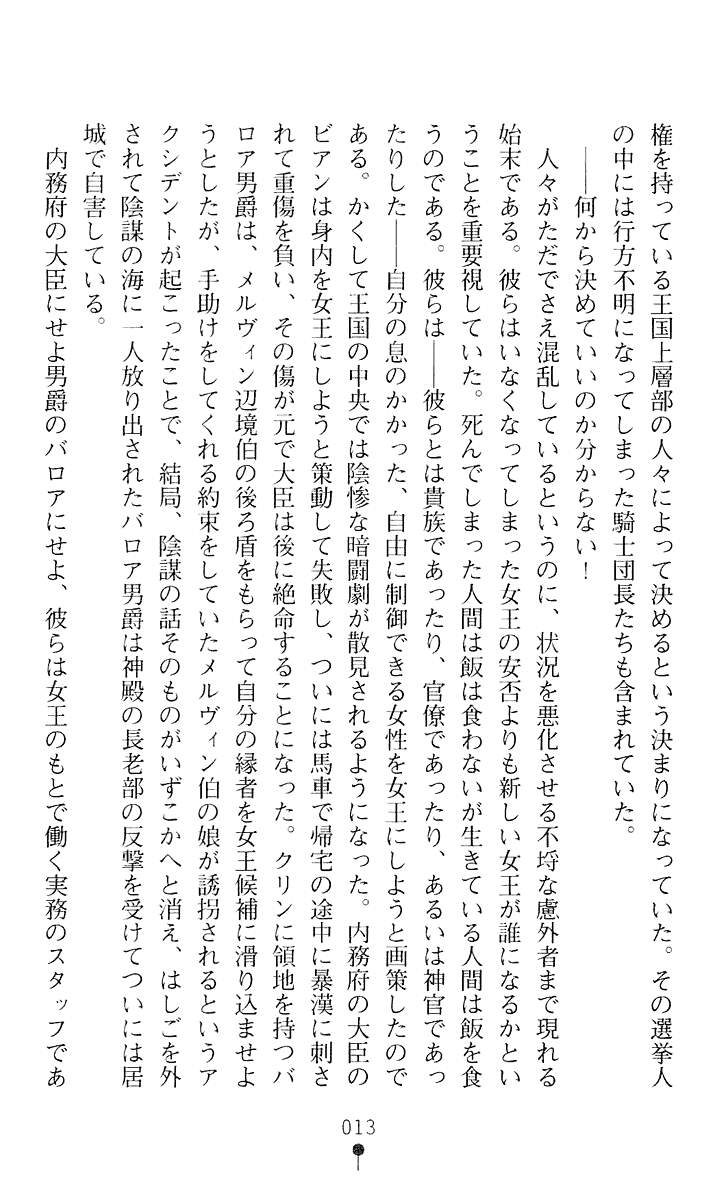 権を持っている王国上層部の人々によって決めるという決まりになっていた。その選挙人
の中には行方不明になってしまった騎士団長たちも含まれていた。
――何から決めていいのか分からない！
人々がただでさえ混乱しているというのに、状況を悪化させる不埒な慮外者まで現れる
始末である。彼らはいなくなってしまった女王の安否よりも新しい女王が誰になるかとい
うことを重要視していた。死んでしまった人間は飯は食わないが生きている人間は飯を食
うのである。彼らは――彼らとは貴族であったり、官僚であったり、あるいは神官であっ
たりした――自分の息のかかった、自由に制御できる女性を女王にしようと画策したので
ある。かくして王国の中央では陰惨な暗闘劇が散見されるようになった。内務府の大臣の
ビアンは身内を女王にしようと策動して失敗し、ついには馬車で帰宅の途中に暴漢に刺さ
れて重傷を負い、その傷が元で大臣は後に絶命することになった。クリンに領地を持つバ
ロア男爵は、メルヴィン辺境伯の後ろ盾をもらって自分の縁者を女王候補に滑り込ませよ
うとしたが、手助けをしてくれる約束をしていたメルヴィン伯の娘が誘拐されるというア
クシデントが起こったことで、結局、陰謀の話そのものがいずこかへと消え、はしごを外
されて陰謀の海に一人放り出されたバロア男爵は神殿の長老部の反撃を受けてついには居
城で自害している。
内務府の大臣にせよ男爵のバロアにせよ、彼らは女王のもとで働く実務のスタッフであ
013